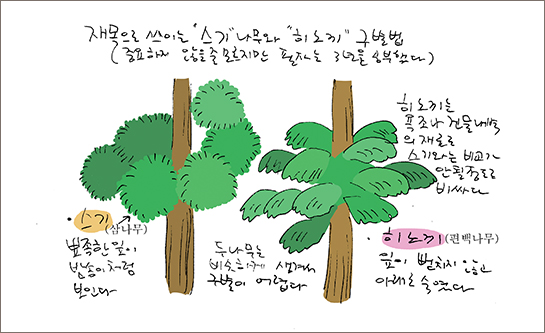 재목으로 쓰이는 "스기"나무와 "히노끼" 구별법
(중요하지 않을줄 모르지만 필자는 3년을 공부했다)
히노끼는
욕조나 건물내속
의 재료로
스기와는 비교가
안될정도로
비싸다
• 스기 (삼나무)
뾰족한 잎이
밤송이처럼
보인다
두나무는
비슷하게 생겨서
구별이 어렵다
• 히노끼 (편백나무)
잎이 뻗치지 않고
아래로 숙였다